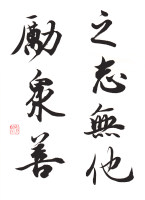 之志無他
勵眾善